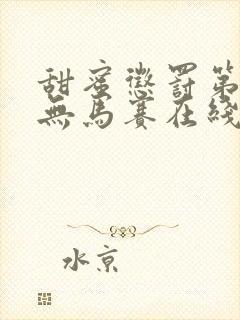 甜蜜懲罰第
無馬賽在綫
水京